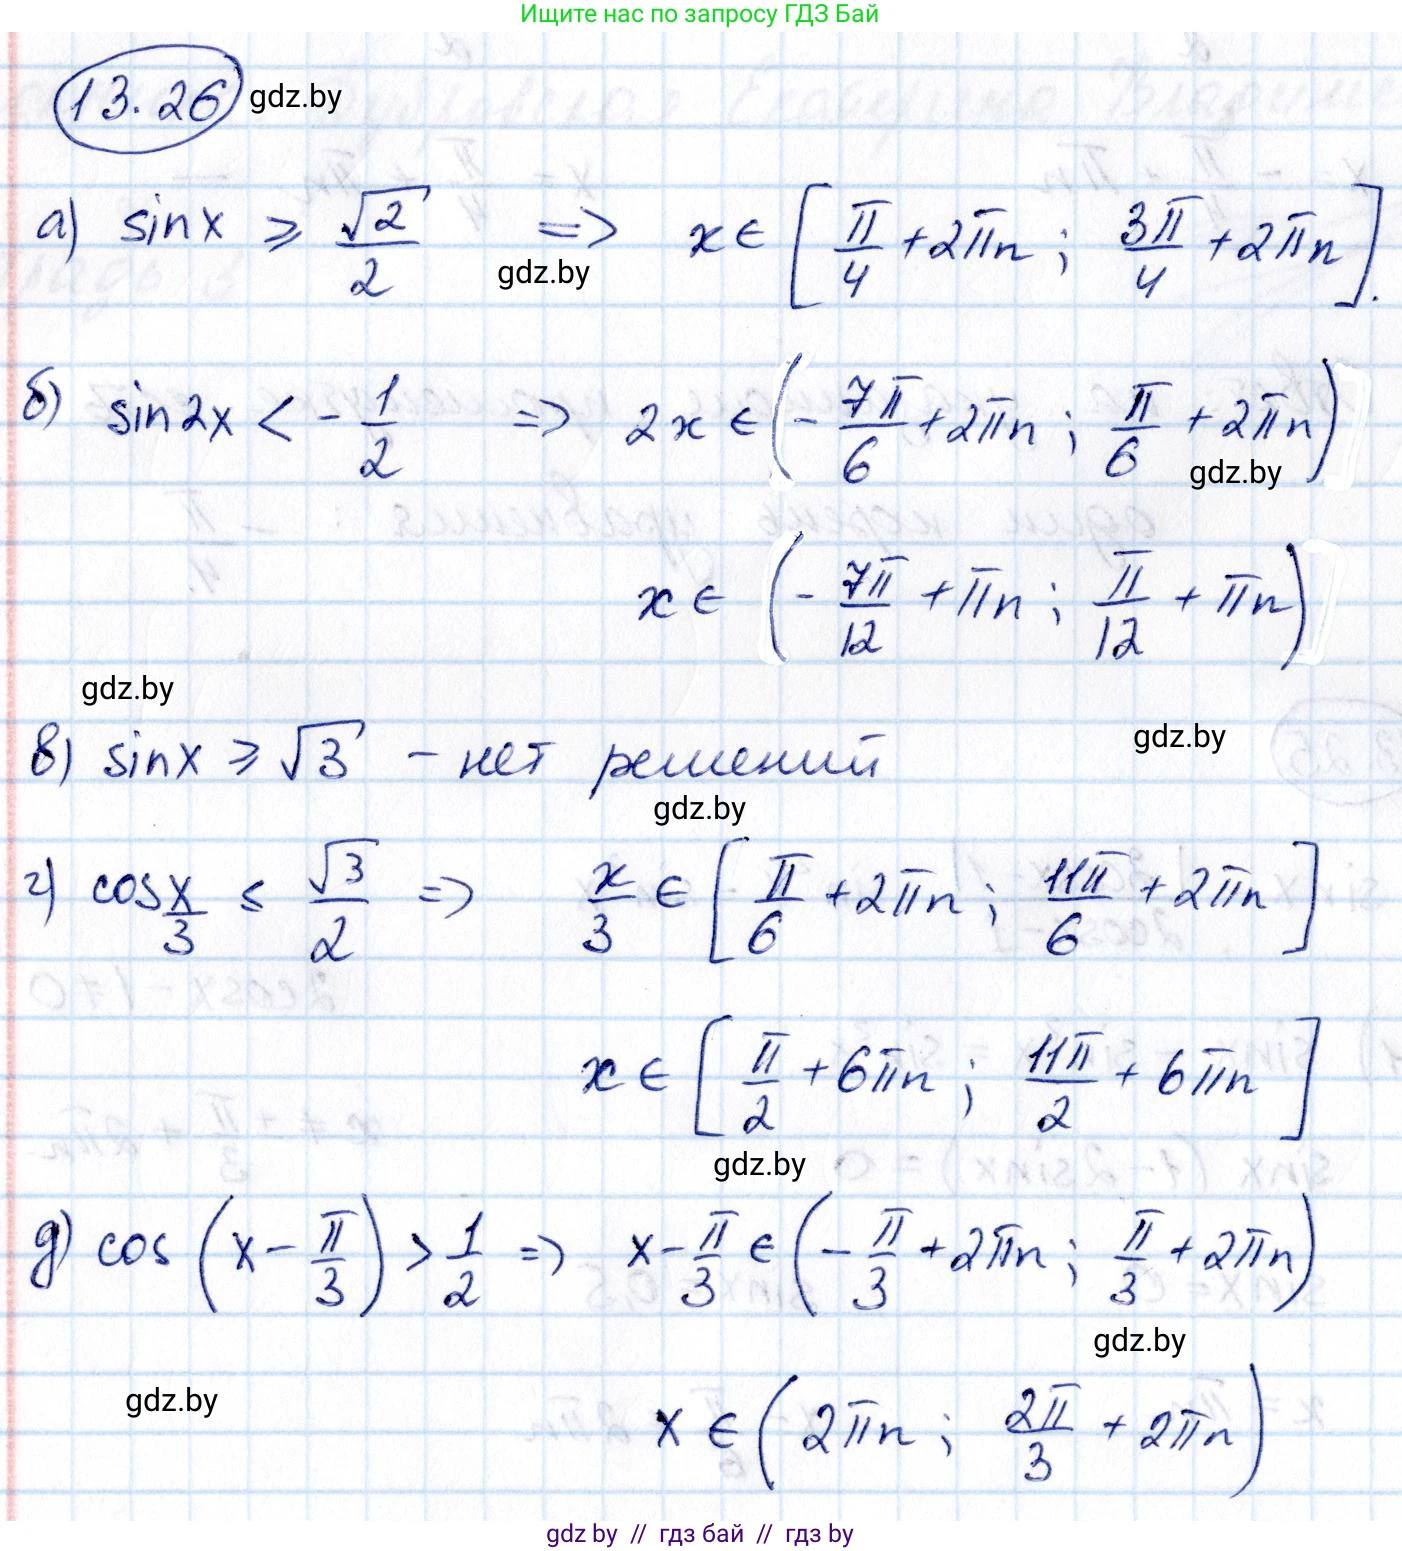 Ищите нас по запросу ГДЗ Бай
13.26 gdz.by
а) sinx ⩾ √2/2 => x ∈ [π/4 + 2πn ; 3π/4 + 2πn].
gdz.by
б) sin2x < - 1/2 => 2x ∈ (- 7π/6 + 2πn ; π/6 + 2πn)
gdz.by
x ∈ (- 7π/12 + πn ; π/12 + πn)
gdz.by
в) sinx ⩾ √3 - нет решений
gdz.by
gdz.by
г) cos x/3 ≤ √3/2 => x/3 ∈ [π/6 + 2πn ; 11π/6 + 2πn]
x ∈ [π/2 + 6πn ; 11π/2 + 6πn]
gdz.by
д) cos (x - π/3) > 1/2 => x - π/3 ∈ (- π/3 + 2πn ; π/3 + 2πn)
gdz.by
gdz.by
x ∈ (2πn ; 2π/3 + 2πn)
gdz.by // гдз бай // гдз by